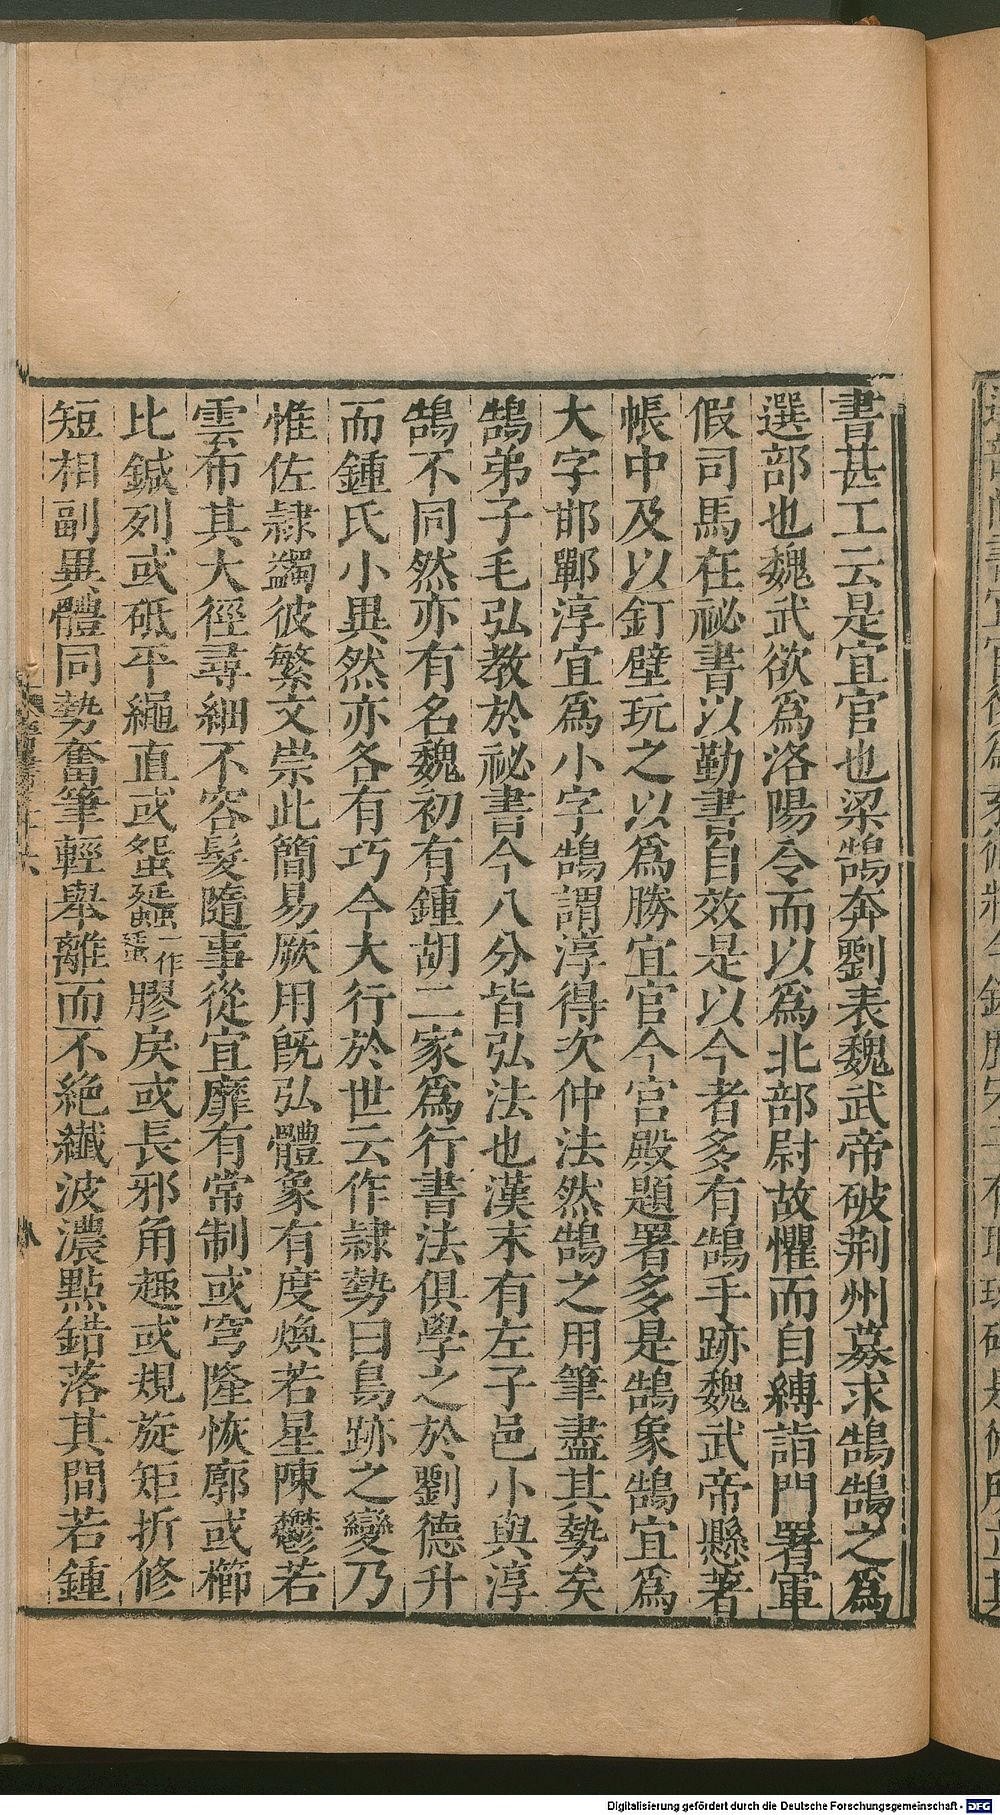 書甚工云是宜官也梁鵠奔劉表魏武帝破荆州募求鵠鵠之爲
選部也魏武欲爲洛陽令而以爲北部尉故懼而自縛詣門署軍
假司馬在祕書以勤書自效是以今者多有鵠手跡魏武帝懸著
帳中及以釘壁玩之以爲勝宜官今宮殿題署多是鵠象鵠宜爲
大字邯鄲淳宜爲小字鵠謂淳得次仲法然鵠之用筆盡其勢矣
鵠弟子毛弘教於祕書今八分皆弘法也漢末有左子邑小與淳
鵠不同然亦有名魏初有鍾胡二家爲行書法俱學之於劉德升
而鍾氏小異然亦各有巧今大行於世云作隷勢曰鳥跡之變乃
惟佐隷蠲彼繁文崇此簡易厥用旣弘體象有度煥若星陳鬱若
雲布其大徑尋細不容髮隨事從宜靡有常制或穹隆恢廓或櫛
比鍼列或砥平繩直或蜿蜒一作膠戾或長邪角趣或規旋矩折修
短相副異體同勢奮筆輕舉離而不絶纎波濃點錯落其間若鍾
Digitalisierung gefördert durch die Deutsche Forschungsgemeinschaft - DFG